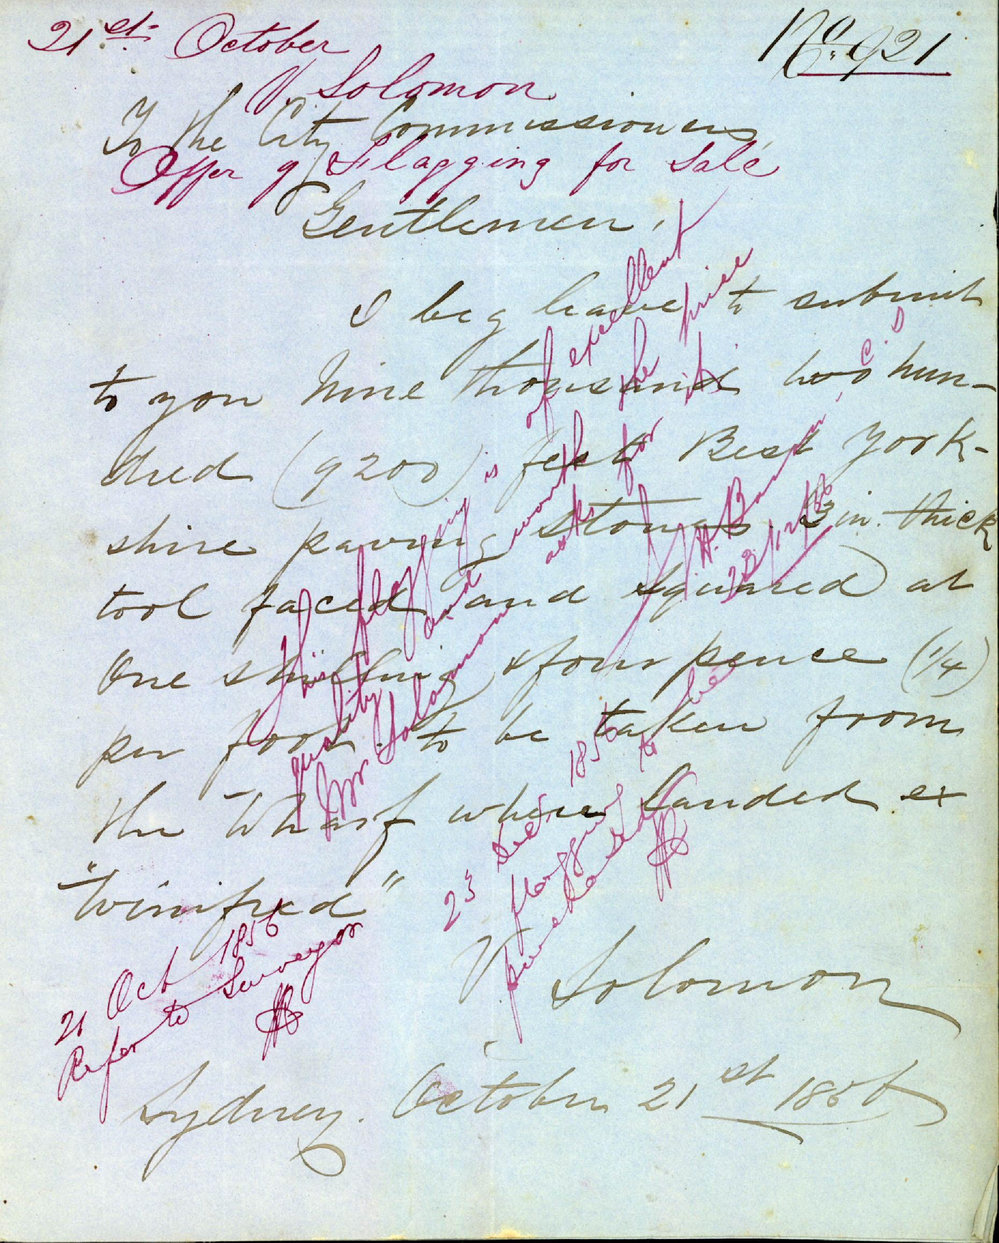 21st October
No. 921
V. Solomon
To the City Commissioners
Offer of Flagging for Sale
Gentlemen,
I beg leave to submit
to you Nine thousand two hun-
dred (9200) feet Best York-
shire paving stones 3 in. thick
tool faced and squared at
One shilling & four pence (1/4)
per foot to be taken from
the Wharf where landed ex
"Winifred"
V Solomon
Sydney. October 21st 1856
This flagging is of excellent
quality and worth the price
Mr Solomon asks for it
23/12/56
C. D
23 Decr 1856
flagging to be
purchased
21 Oct 1856
Refer to Surveyor